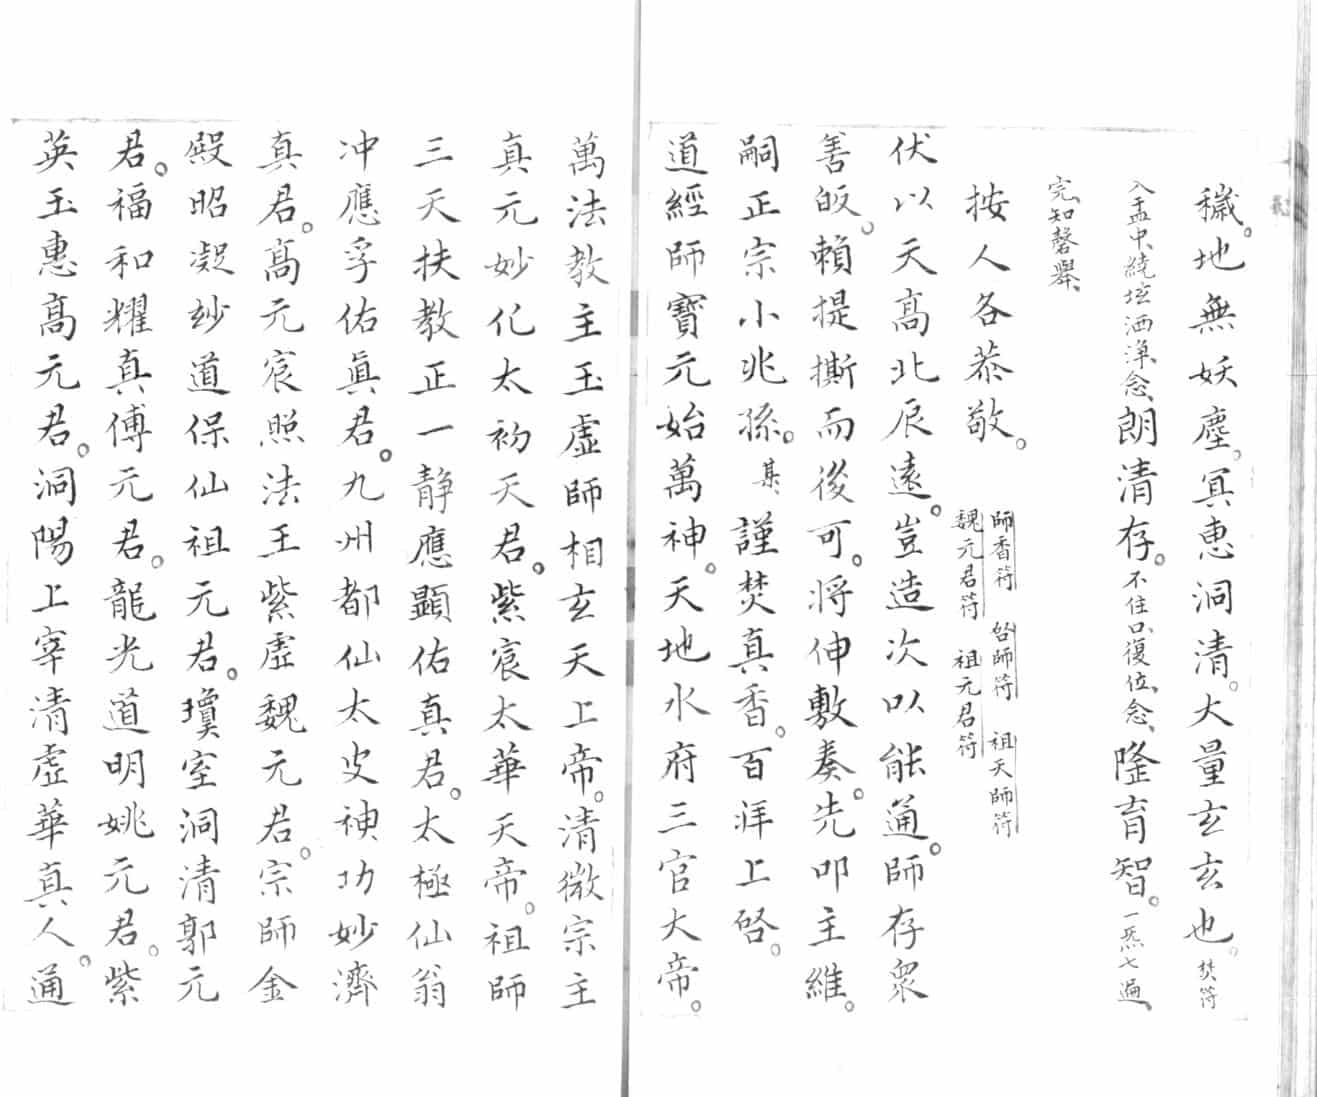 穢地無妖塵冥惠洞清大量玄玄也焚符
入盂中繞壇洒淨念朗清存不住口復位念隆育智一炁七遍
完知磬舉
按人各恭敬
師香符 啓師符 祖天師符
魏元君符 祖元君符
伏以天高北辰遠豈造次以能通師存眾
善皈賴提撕而後可將伸敷奏先叩主維
嗣正宗小兆孫某謹焚真香百拜上啓
道經師寶元始萬神天地水府三官大帝
萬法教主玉虛師相玄天上帝清微宗主
真元妙化太初天君紫宸太華天帝祖師
三天扶教正一靜應顯佑真君太極仙翁
冲應孚佑眞君九州都仙太史神功妙濟
真君高元宸照法王紫虛魏元君宗師金
殿昭凝妙道保仙祖元君瓊室洞清郭元
君福和耀真傅元君龍光道明姚元君紫
英玉惠高元君洞陽上宰清虛華真人通